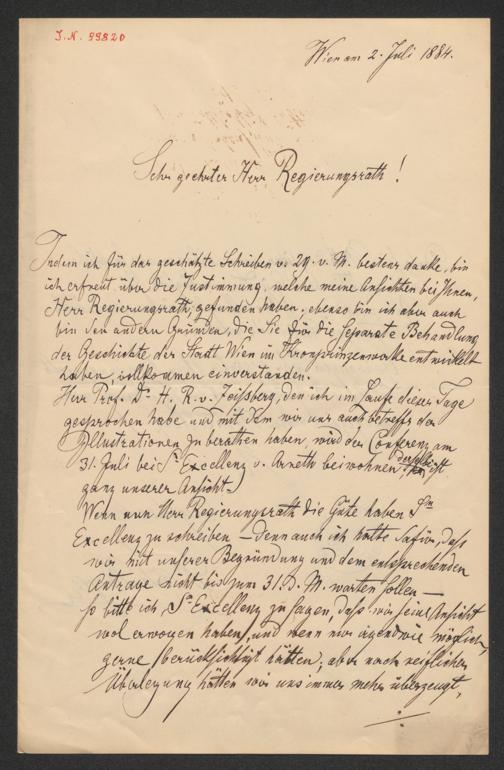 I.N. 99820
Wien am 2. Juli 1884.
Sehr geehrter Herr Regierungsrath!
Indem ich für das geschätzte Schreiben v. 29. v. M. bestens danke, bin
ich erfreut über die Zustimmung, welche meine Ansichten bei Ihnen,
Herr Regierungsrath, gefunden haben; ebenso bin ich aber auch
bin den andern Gründen, die Sie für die separate Behandlung
der Geschichte der Stadt Wien im Kronprinzenwerke entwickelt
haben, vollkommen einverstanden.
Herr Prof. Dr. H. R. v. Zeißberg, den ich im Laufe dieser Tage
gesprochen habe und mit dem wir uns auch betreffs der
Illustrationen zu berathen haben, wird der Conferenz am
31. Juli bei Sr. Excellenz v. Arneth beiwohnen; derselbe ist
ganz unserer Ansicht.
Wenn nun Herr Regierungsrath die Güte haben Sr.
Excellenz zu schreiben – denn auch ich halte dafür, daß
wir mit unserer Begründung und dem entsprechenden
Antrage nicht bis zum 31. d. M. warten sollen –
so bitte ich Sr. Excellenz zu sagen, daß wir seine Ansicht
wol erwogen haben, und wenn nur irgendwie möglich,
gerne berücksichtigt hätten; aber nach reiflicher
Überlegung hätten wir uns immer mehr überzeugt,